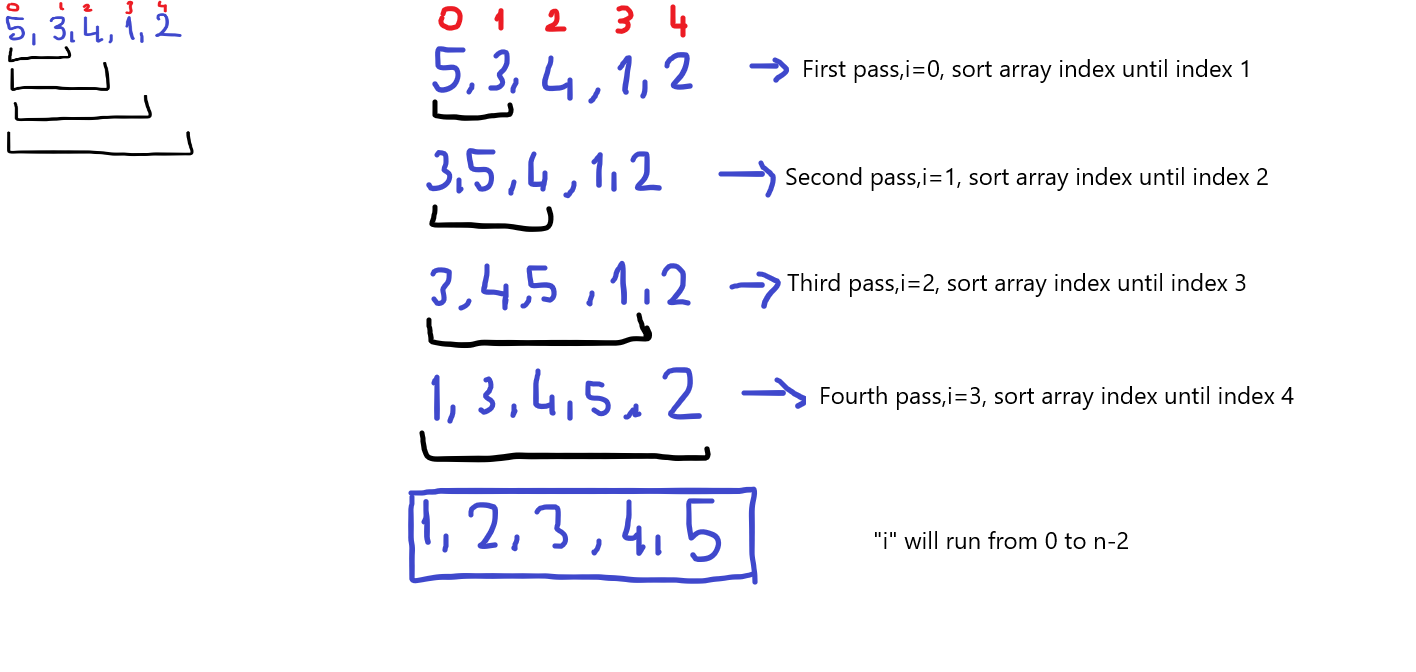 0 1 2 3 4
5, 3, 4, 1, 2
0 1 2 3 4
5, 3, 4, 1, 2 → First pass,i=0, sort array index until index 1
3,5,4,1,2 → Second pass,i=1, sort array index until index 2
3,4,5,1,2 → Third pass,i=2, sort array index until index 3
1,3,4,5,2 → Fourth pass,i=3, sort array index until index 4
1,2,3,4,5
"i" will run from 0 to n-2